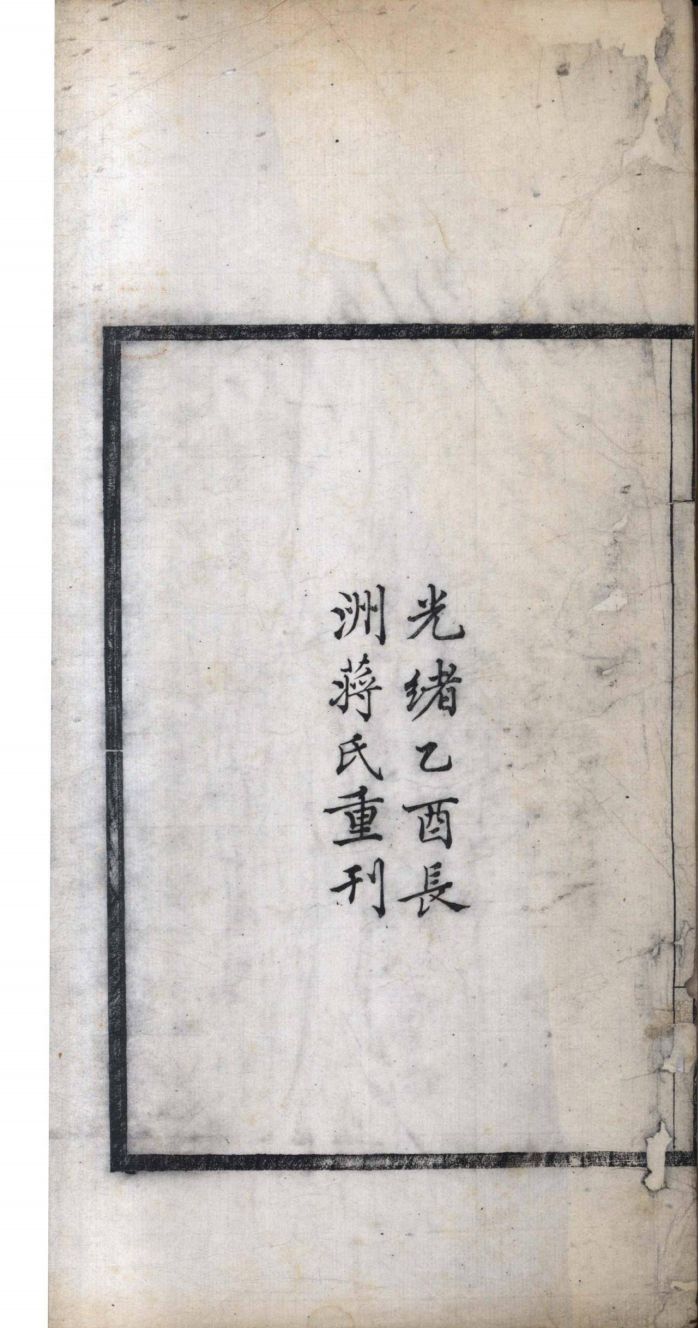 光緒乙酉長
洲蔣氏重刊